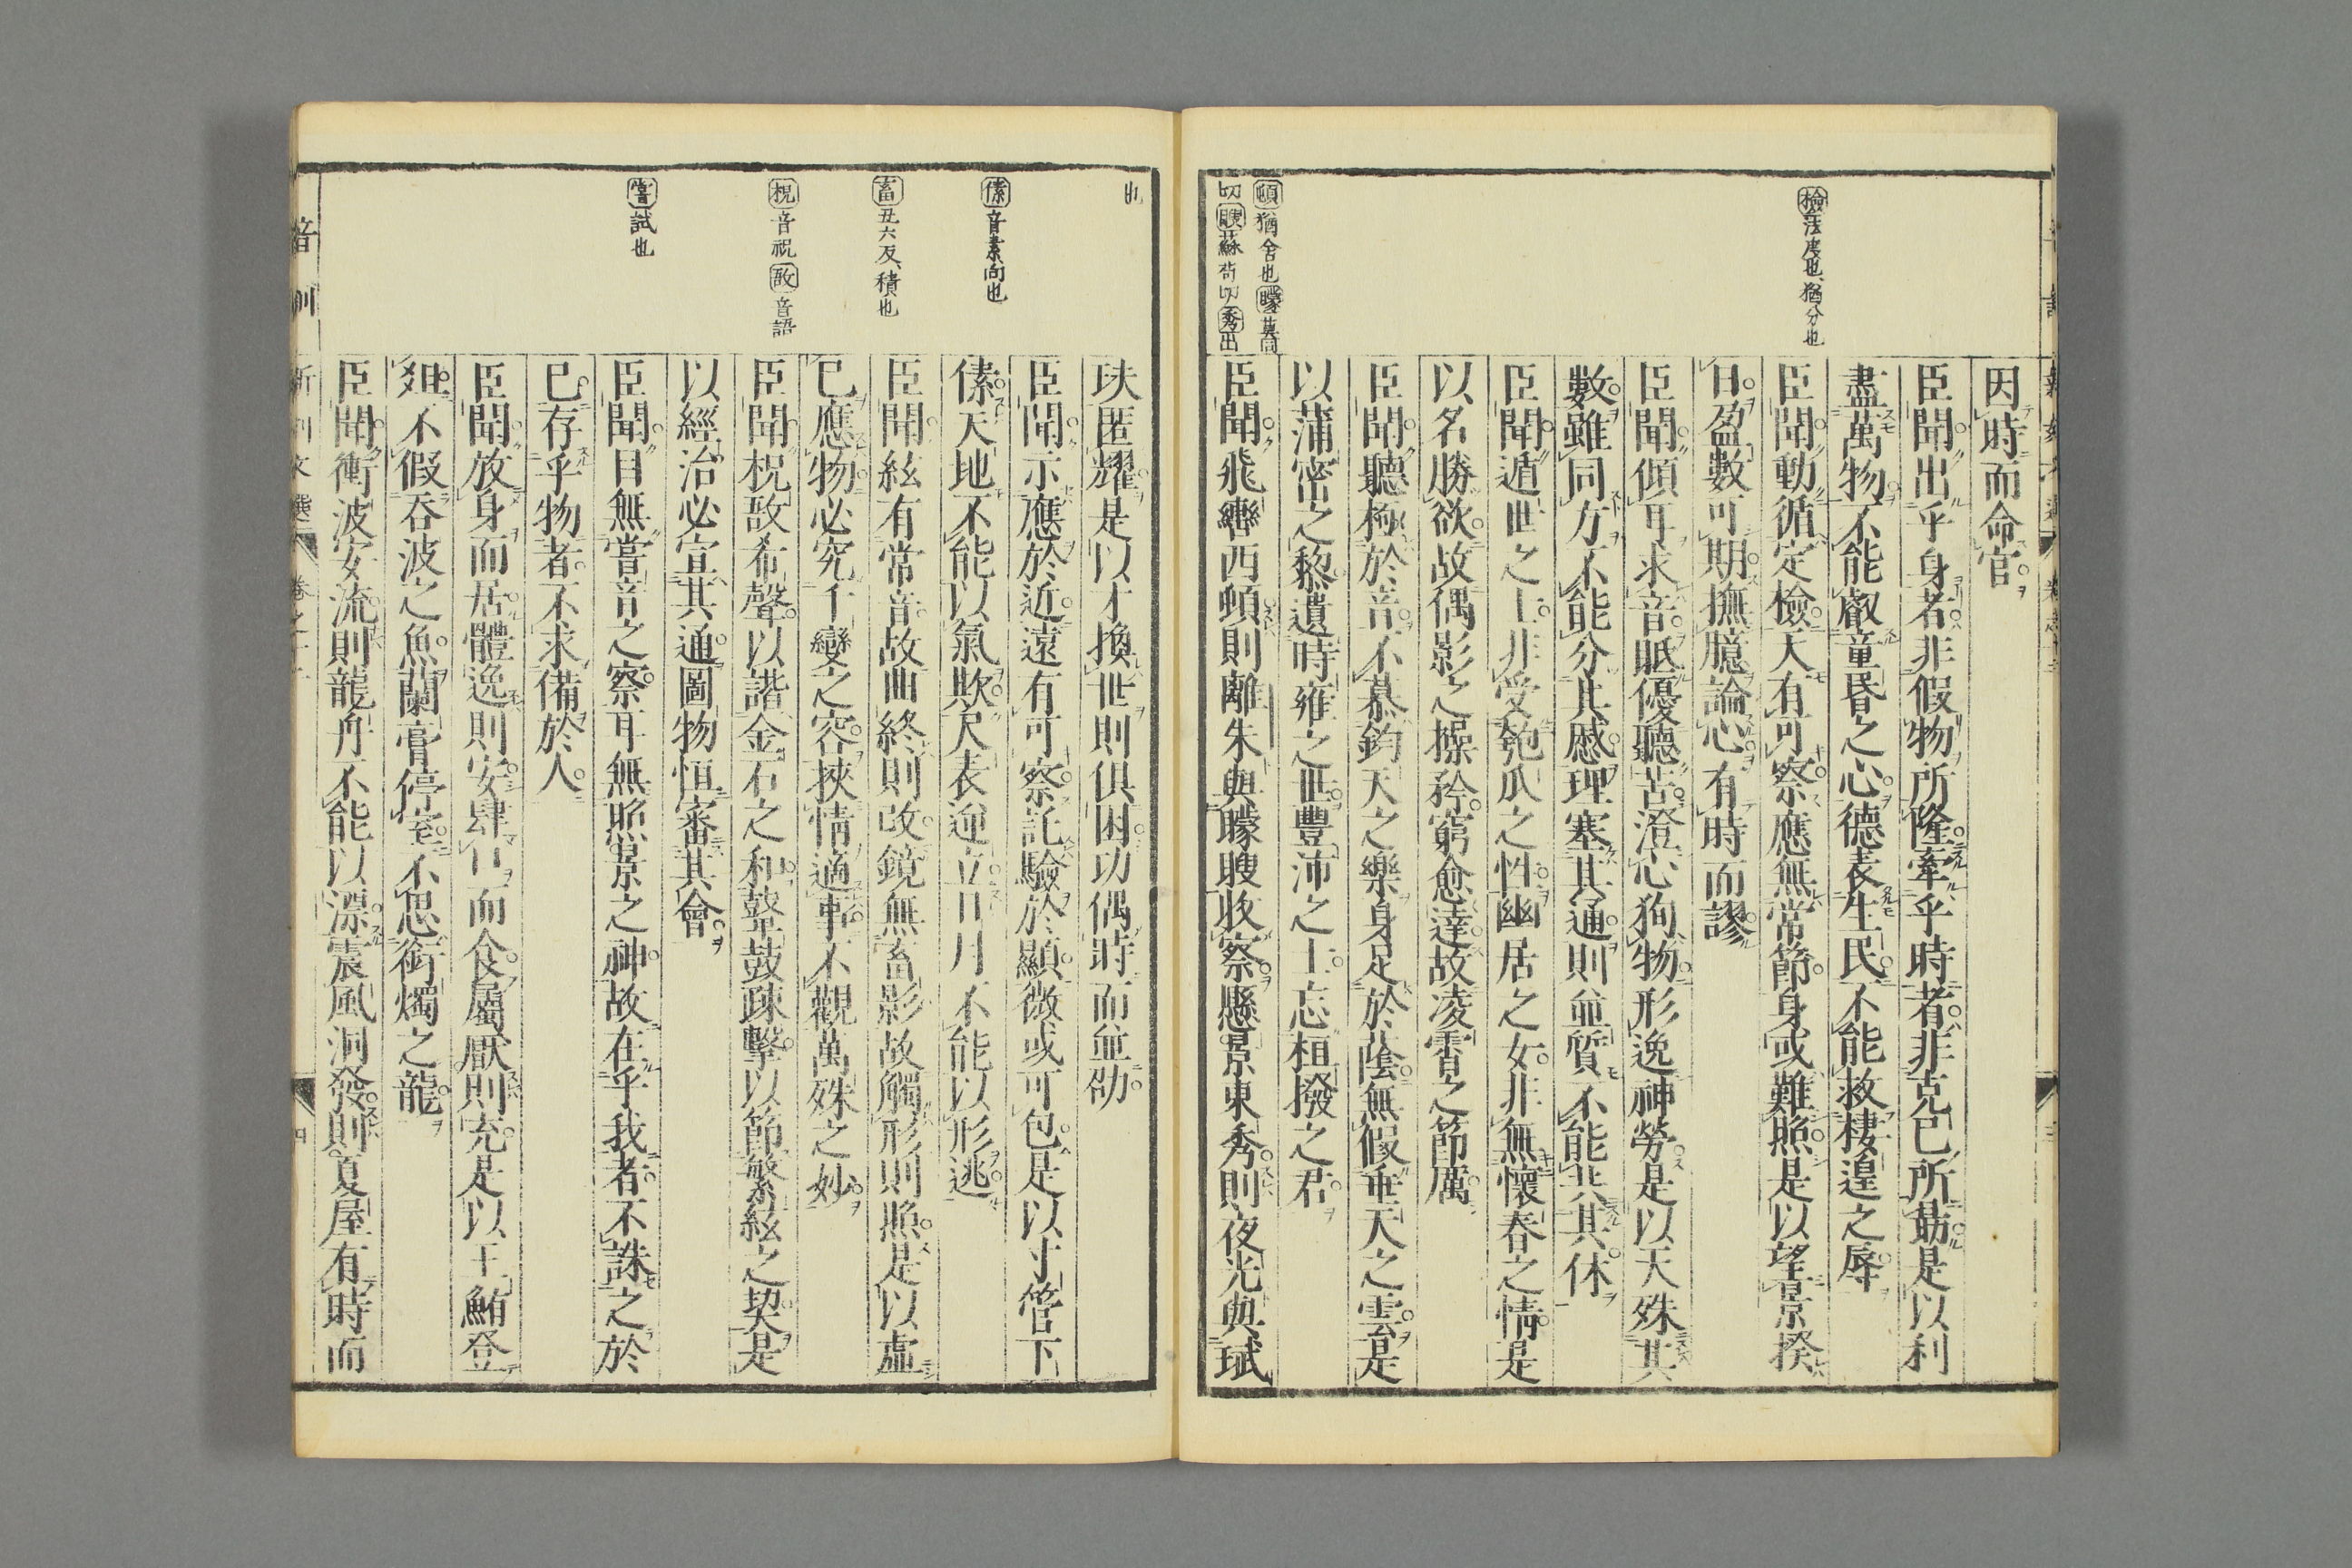 檢法度也、猶分也
頓猶舍也矇莫同
切瞍蘇苟切秀出
因時而命官
臣聞出乎身者非假物所隆牽乎時者非克己所勗是以利
盡萬物不能叡童昏之心德表生民不能救棲遑之辱
臣聞動循定檢天有可察應無常節身或難照是以望景揆
日盈數可期撫臆論心有時而謬
臣聞傾耳求音眡優聽苦澄心狥物形逸神勞是以天殊其
數雖同方不能分其慼理塞其通則並質不能共其休
臣聞遁世之士非受匏瓜之性幽居之女非無懷春之情是
以名勝欲故偶影之操矜窮愈達故凌霄之節厲
臣聞聽極於音不慕鈞天之樂身足於蔭無假垂天之雲是
以蒲密之黎遺時雍之世豐沛之士忘桓撥之君
臣聞飛轡西頓則離朱與矇瞍收察懸景東秀則夜光與珷
也
傃音素向也
畜丑六反、積也
柷音祝敔音語
嘗試也
玞匿耀是以才換世則俱困功偶時而並劭
臣聞示應於近遠有可察託驗於顯微或可包是以寸管下
傃天地不能以氣欺尺表逆立日月不能以形逃
臣聞絃有常音故曲終則改鏡無畜影故觸形則照是以虛
己應物必究千變之容挾情適事不觀萬殊之妙
臣聞柷敔希聲以諧金石之和鼙鼓疎擊以節繁絃之契是
以經治必宣其通圖物恒審其會
臣聞目無嘗音之察耳無照景之神故在乎我者不誅之於
己存乎物者不求備於人
臣聞放身而居體逸則安肆口而食屬厭則充是以王鮪登
俎不假吞波之魚蘭膏停室不思銜燭之龍
臣聞衝波安流則龍舟不能以漂震風洞發則夏屋有時而
音訓 新刻文選 卷之十二 四